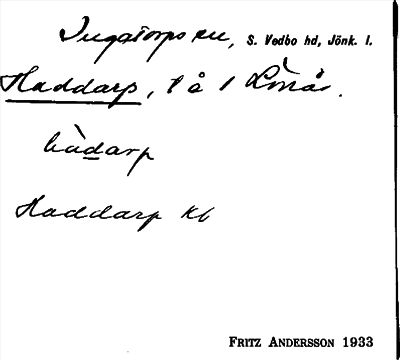 Ingatorps sn, S. Vedbo hd, Jönk. l.
Haddarp, t å 1
hàdarp
Haddarp Kb
FRITZ ANDERSSON 1933